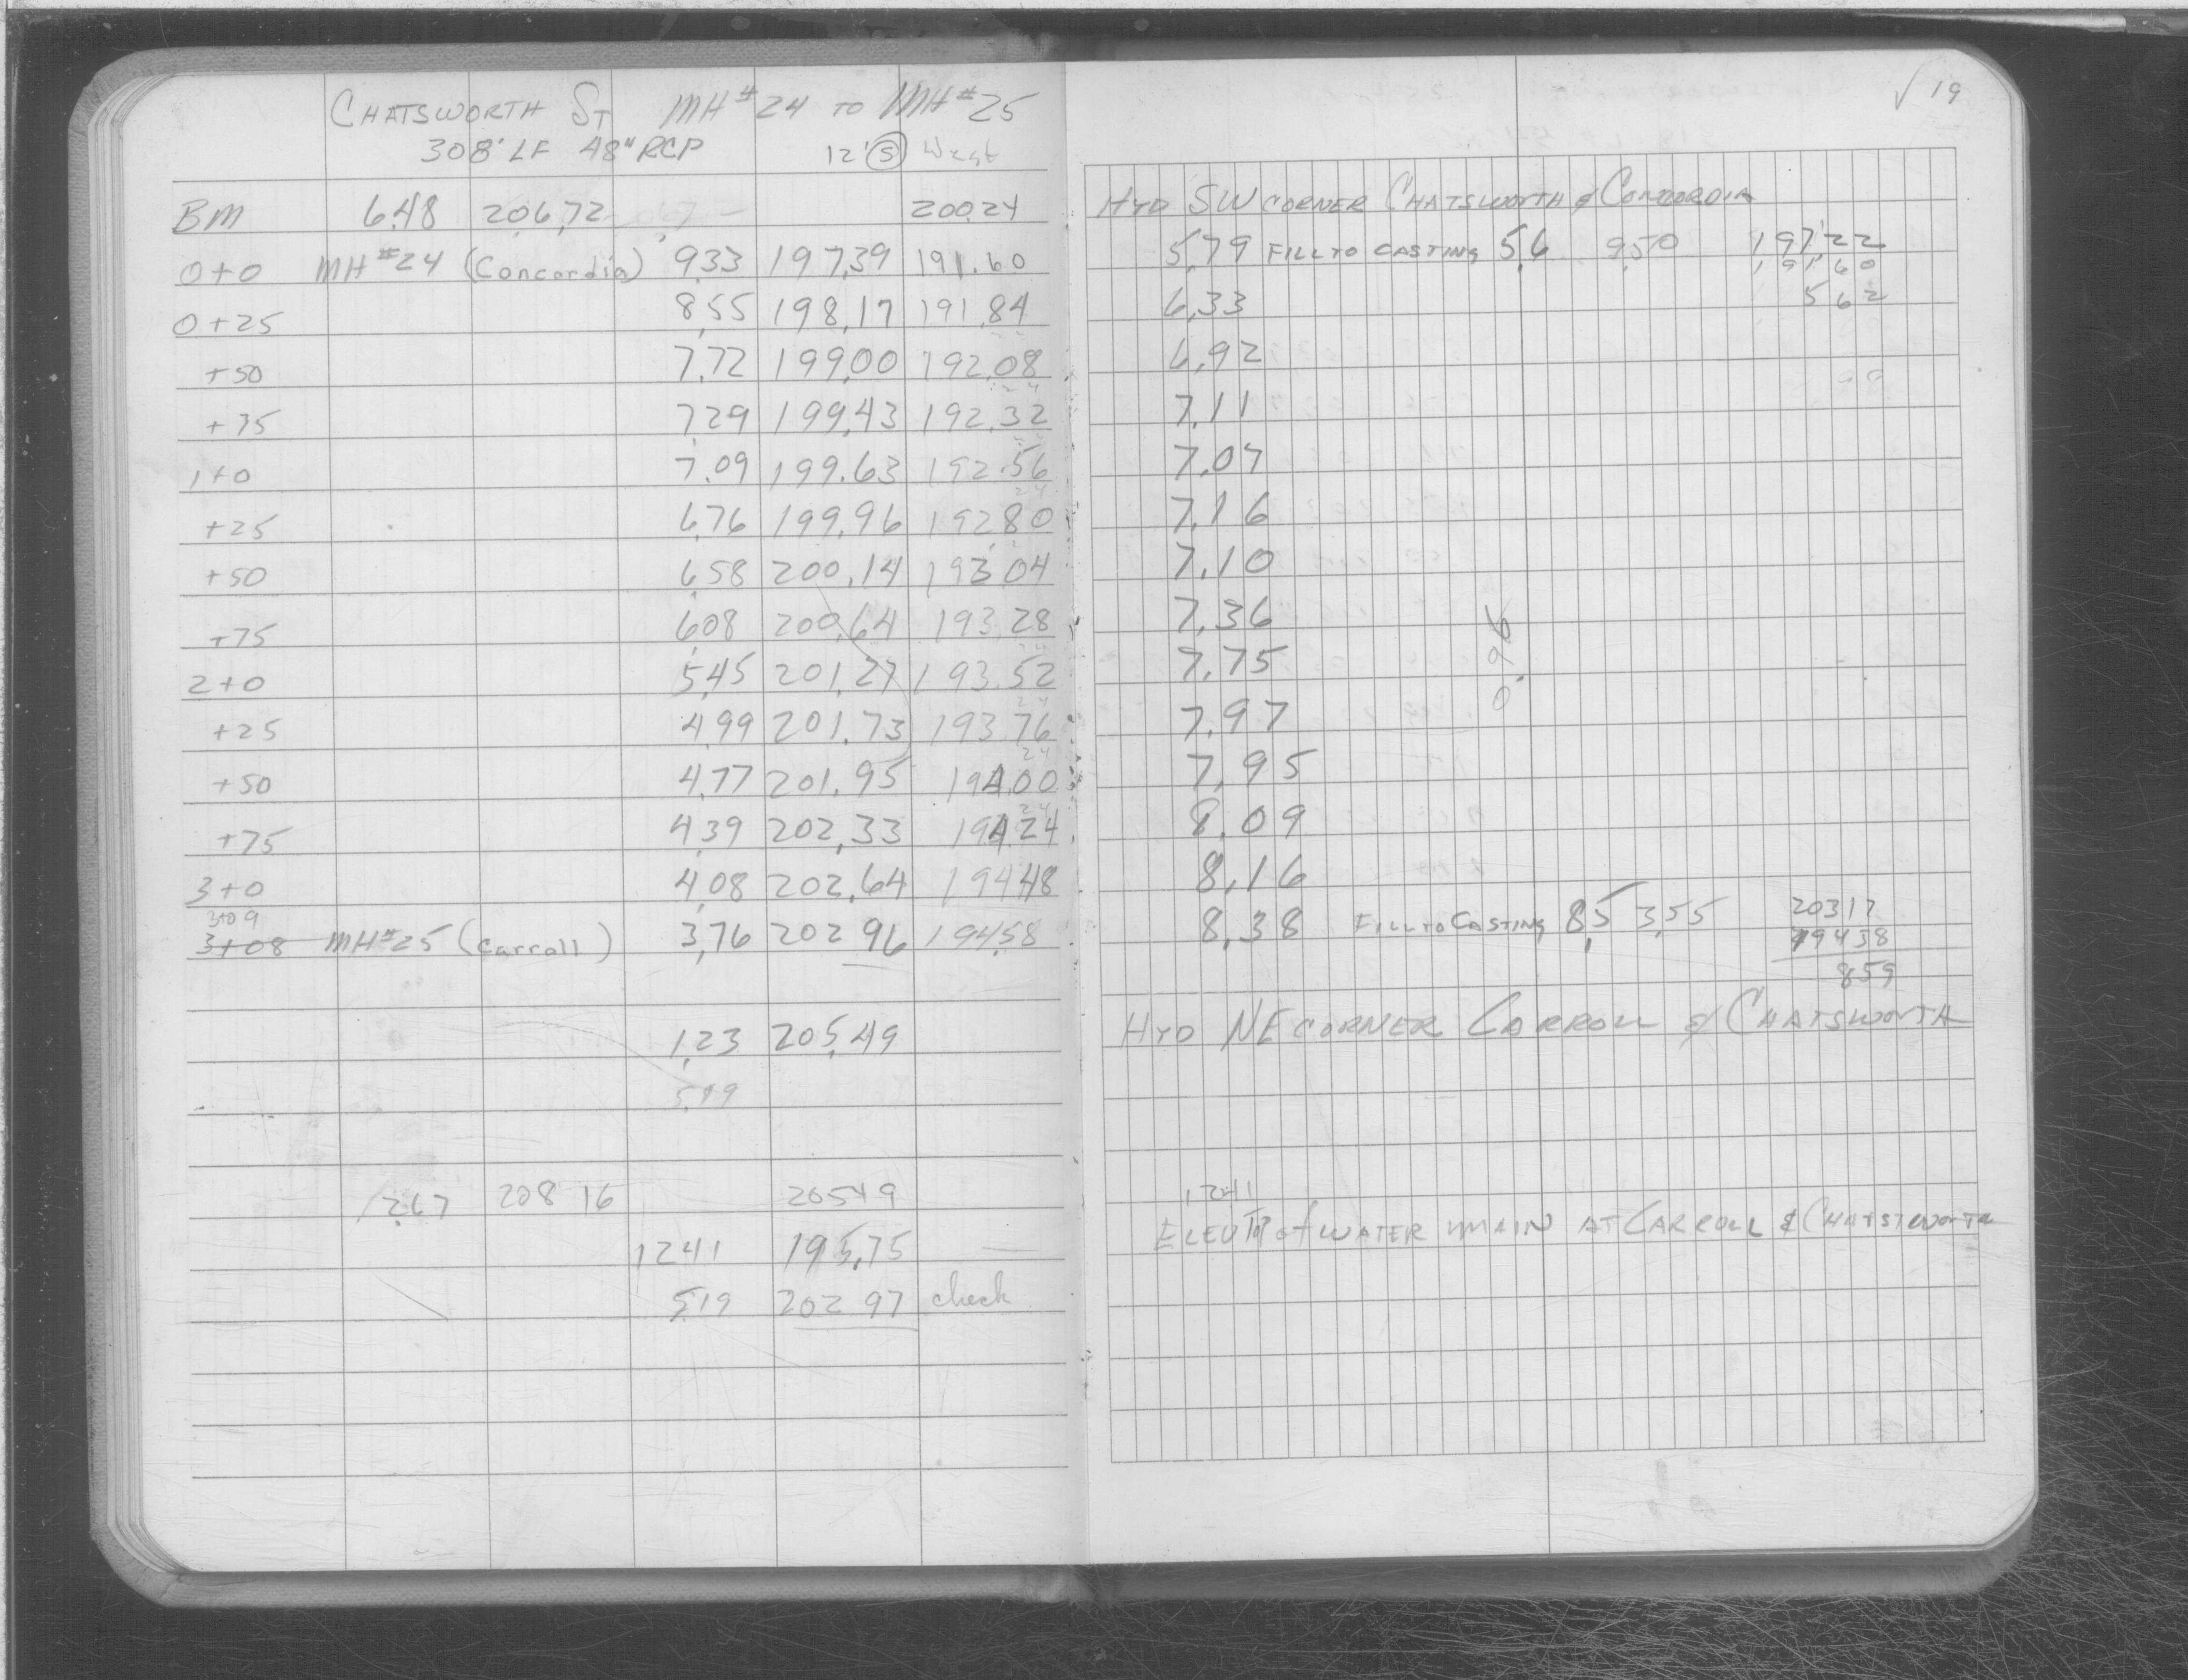 CHATSWORTH ST MH #24 TO MH #25
308' LF 48" RCP 12' (S) West
BM 6.48 206.72 200.24
0+0 MH #24 (Concordia) 9.33 197.39 191.60
0+25 8.55 198.17 191.84
+50 7.72 199.00 192.08
+75 7.29 199.43 192.32
1+0 7.09 199.63 192.56
+25 6.76 199.96 192.80
+50 6.58 200.14 193.04
+75 6.08 200.64 193.28
2+0 5.45 201.27 193.52
+25 4.99 201.73 193.76
+50 4.77 201.95 194.00
+75 4.39 202.33 194.24
3+0 4.08 202.64 194.48
3+09
3+08 MH #25 (Carroll) 3.76 202.96 194.58
1.23 205.49
5.19
2.67 208.16 205.49
12.41 195.75
5.19 202.97 check
√ 19
HYD SW CORNER CHATSWORTH & CONCORDIA
5.79 FILL TO CASTING 5.6 9.50 197.22
191.60
6.33 5.62
6.92
7.11
7.07
7.16
7.10
7.36
0.96
7.75
7.97
7.95
8.09
8.16
8.38 FILL TO CASTING 8.5 3.55 203.17
194.58
8.59
HYD NE CORNER CARROLL & CHATSWORTH
12.41
ELEV TOP of WATER MAIN AT CARROLL & CHATSTWORTH